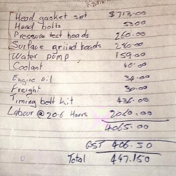 Head gasket set $713.00
Head bolts 53.00
Pressure test heads 260.00
Surface grind heads 280.00
Water pump 159.00
Coolant
Engine oil
Freight 30.00
Timing belt kit 436.00
Labour @ 20.6 Hours 2060.00
4065.00
GST 406.50
Total $4471.50